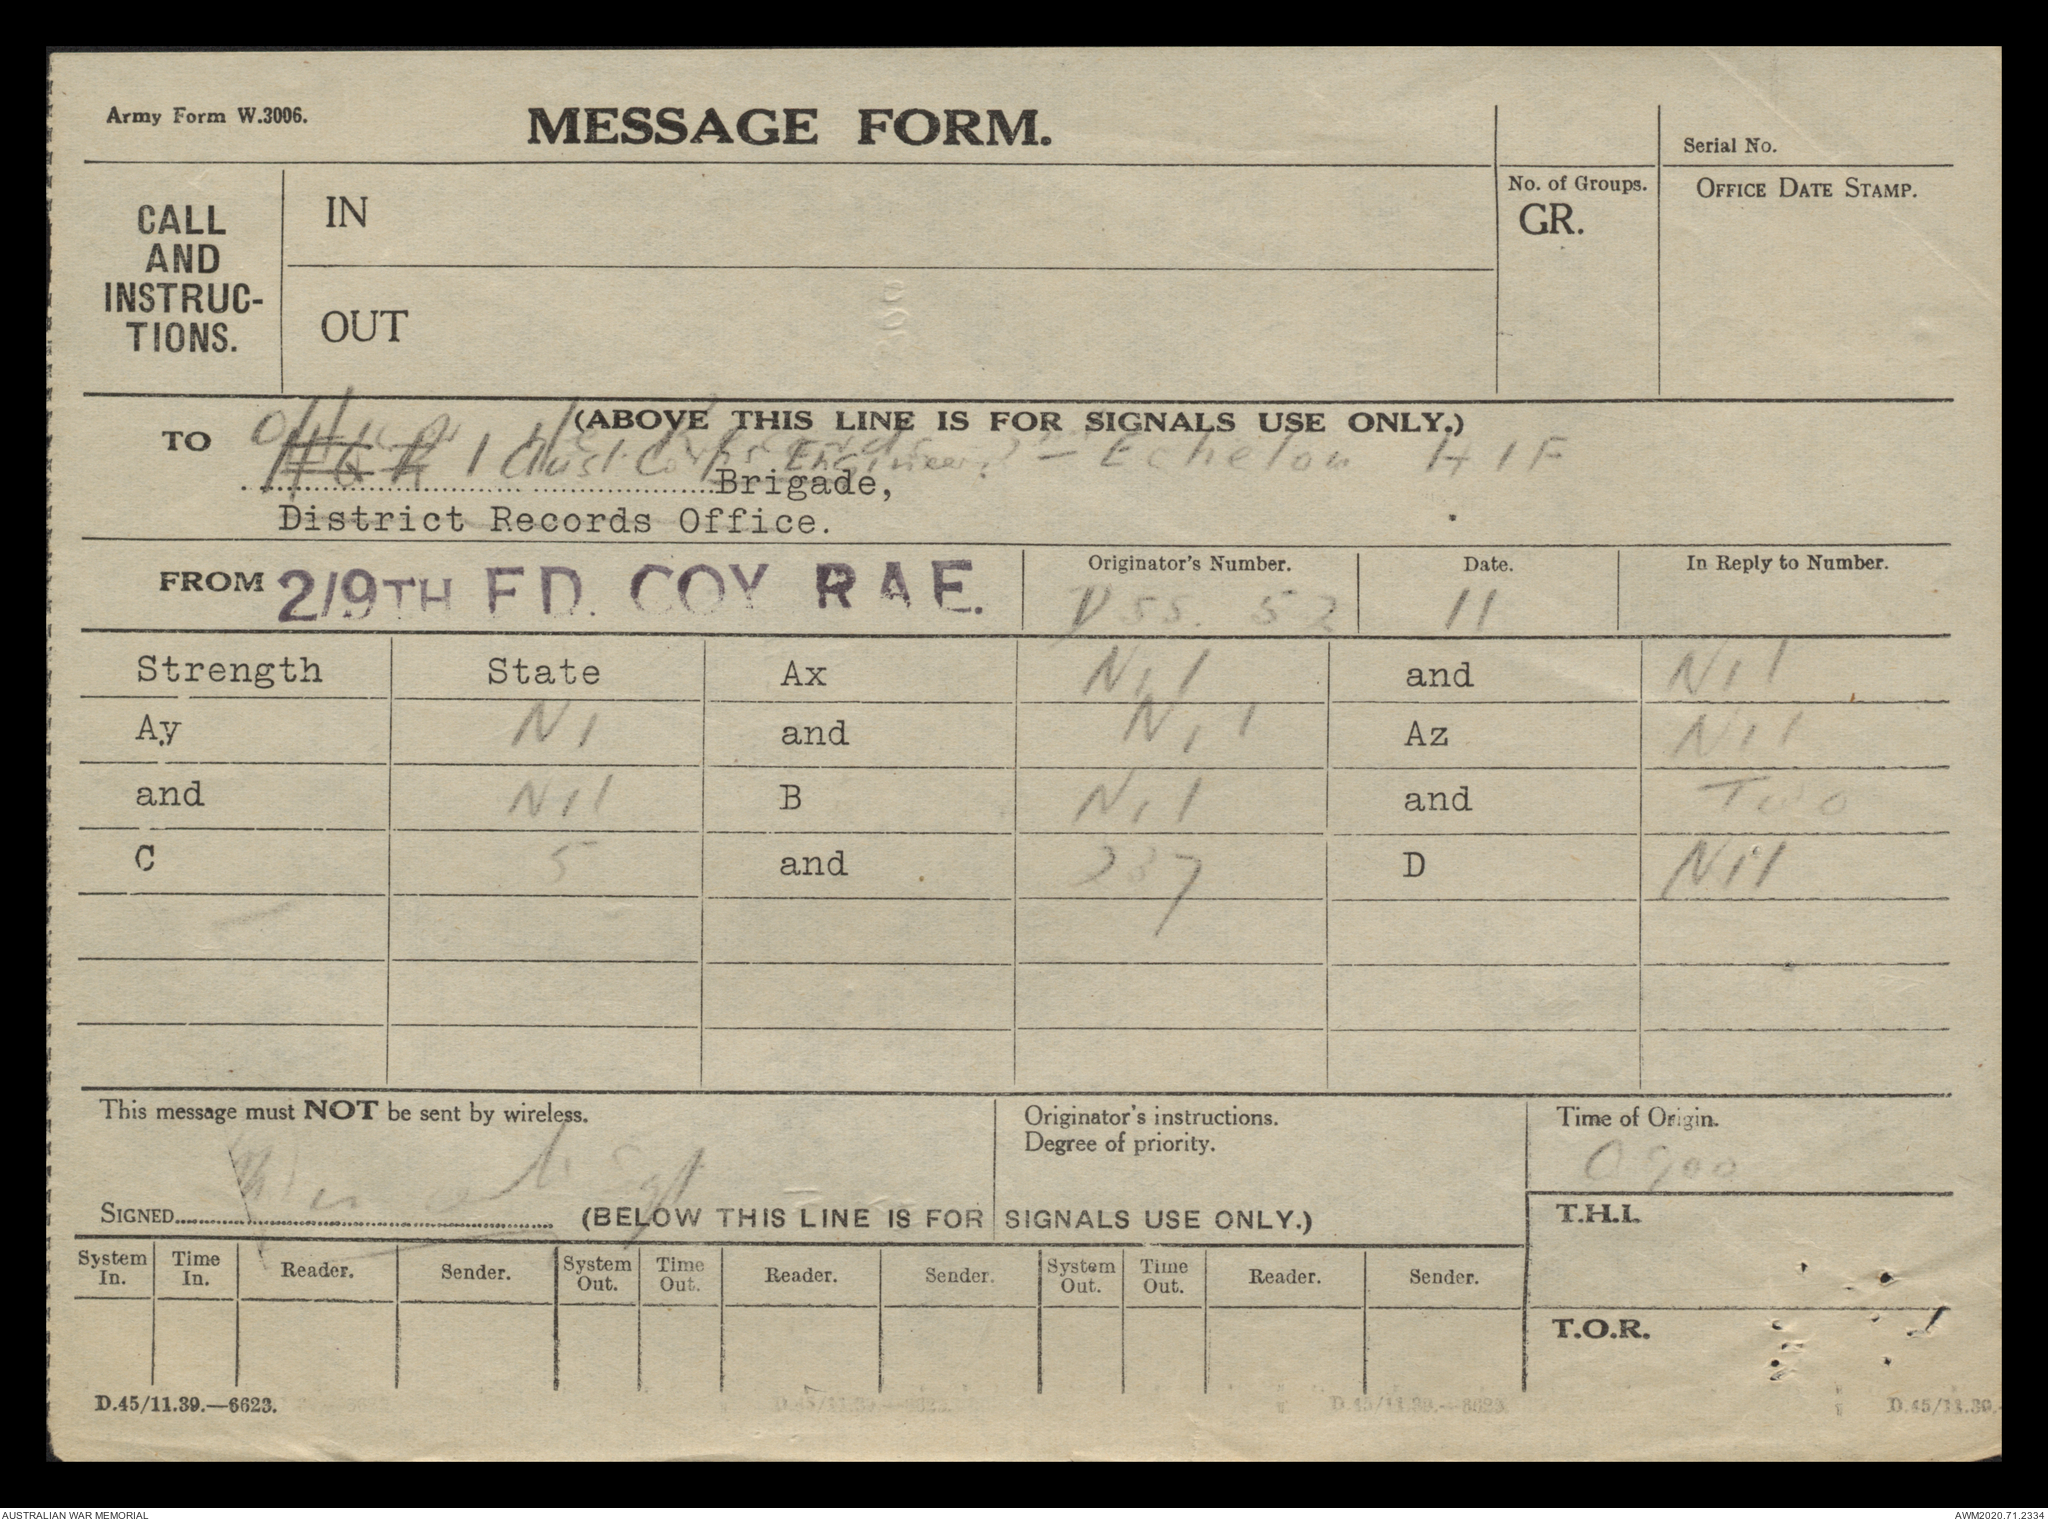 Army Form W.3006.
MESSAGE FORM.
Serial No.
CALL AND INSTRUC-TIONS.
IN
No. of Groups.
GR.
OFFICE DATE STAMP.
OUT
(ABOVE THIS LINE IS FOR SIGNALS USE ONLY.)
TO
Officer Records 2nd Echelon AIF
HQ R 1 Aust Corps Engineers
Brigade,
District Records Office.
FROM 2/9TH FD. COY RAE.
Originator's Number.
Date.
In Reply to Number.
DSS. 52
11
Strength State Ax Nil and Nil
Ay Nil and Nil Az Nil
and Nil B Nil and Two
C 5 and 237 D Nil
This message must NOT be sent by wireless.
Originator's instructions.
Degree of priority.
Time of Origin.
0900
SIGNED
(BELOW THIS LINE IS FOR SIGNALS USE ONLY.)
T.H.I.
System In. Time In. Reader. Sender. System Out. Time Out. Reader. Sender. System Out. Time Out. Reader. Sender.
T.O.R.
D.45/11.39.—6623.
AUSTRALIAN WAR MEMORIAL
AWM2020.71.2334